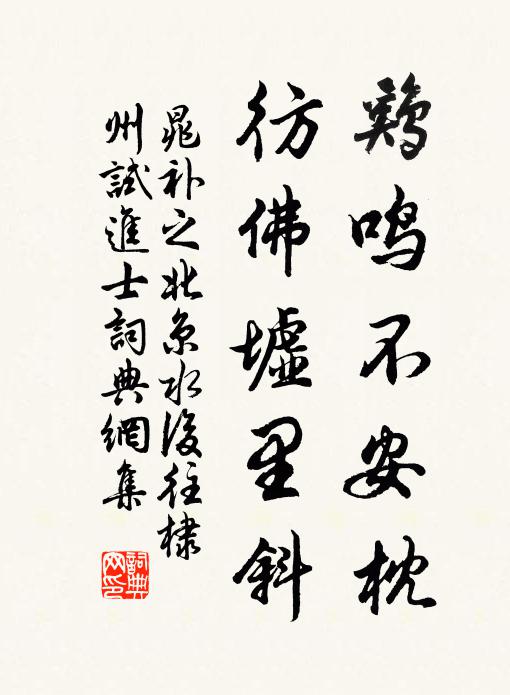 鷄鳴不安枕
彷佛墟里斜
晁補之北京水後往棣
州試進士詞典網集
詞典
网印